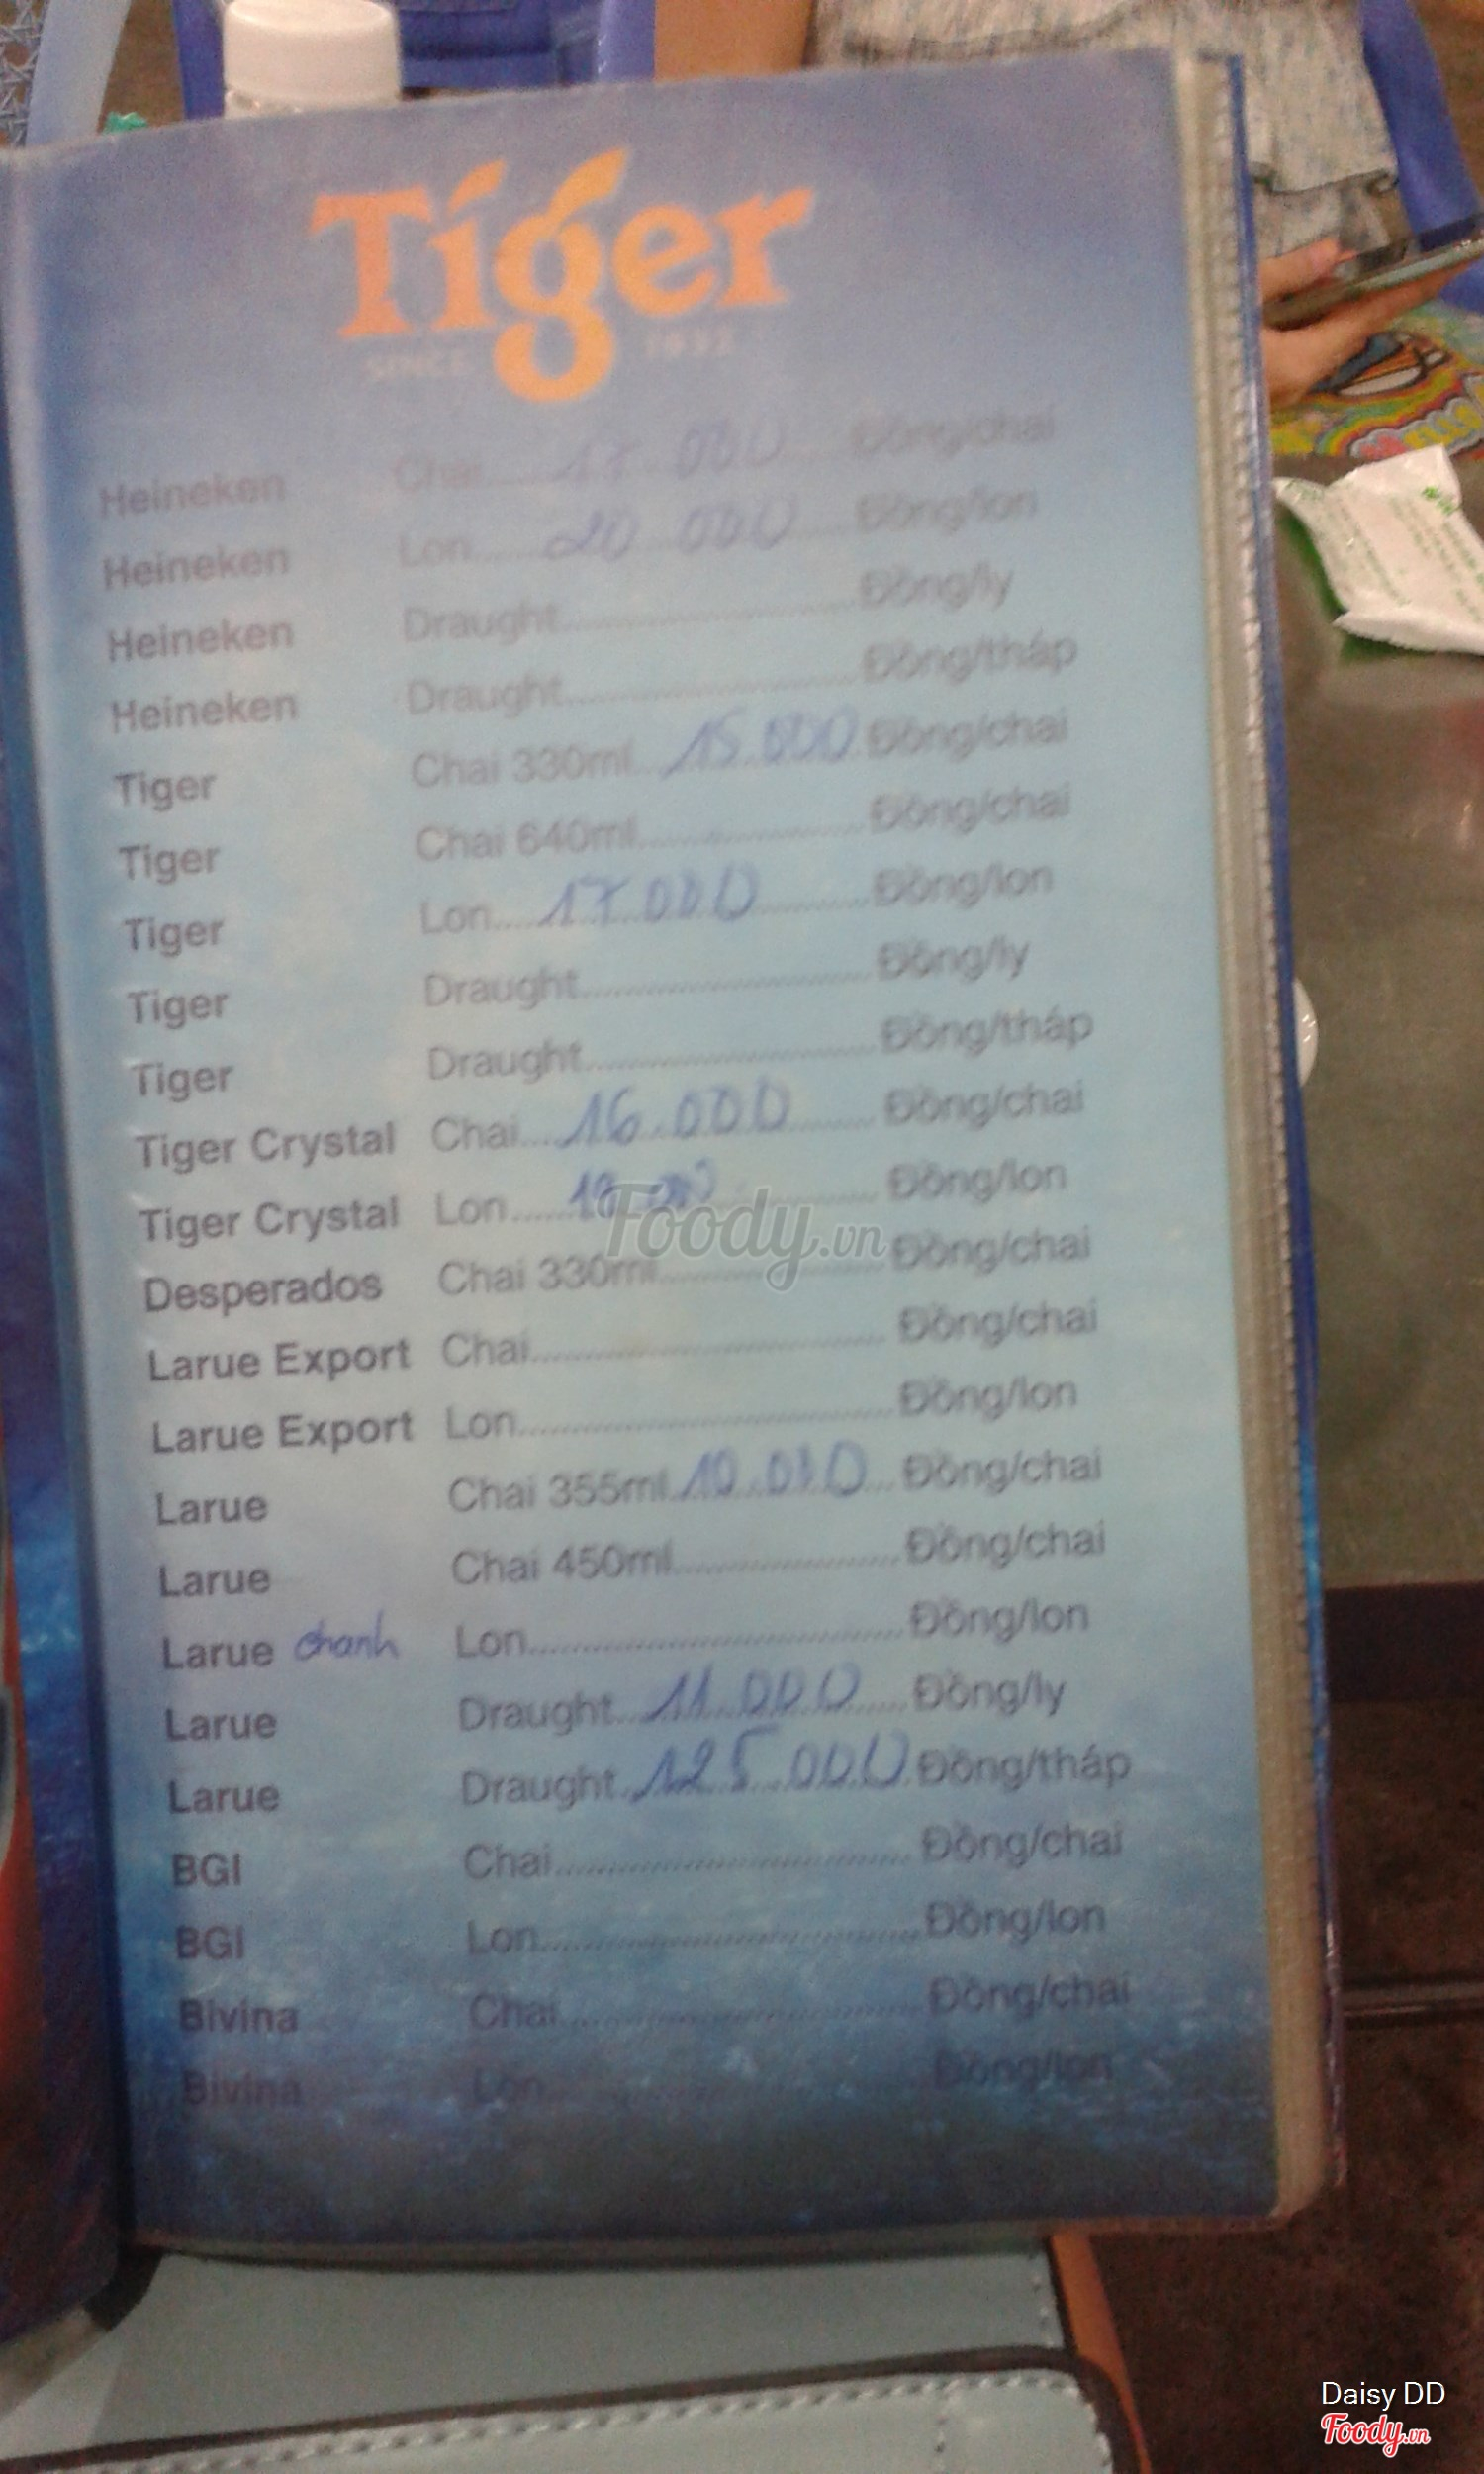 Tiger
SINCE 1932
Heineken Chai......17.000....Đồng/chai
Heineken Lon......20.000......Đồng/lon
Heineken Draught..............................Đồng/ly
Heineken Draught..............................Đồng/tháp
Tiger Chai 330ml...15.000.Đồng/chai
Tiger Chai 640ml........................Đồng/chai
Tiger Lon....17.000..........Đồng/lon
Tiger Draught..............................Đồng/ly
Tiger Draught..............................Đồng/tháp
Tiger Crystal Chai....16.000.........Đồng/chai
Tiger Crystal Lon...............Đồng/lon
Foody.vn
Desperados Chai 330ml........................Đồng/chai
Larue Export Chai....................................Đồng/chai
Larue Export Lon.....................................Đồng/lon
Larue Chai 355ml.10.000...Đồng/chai
Larue Chai 450ml........................Đồng/chai
Larue chanh Lon.....................................Đồng/lon
Larue Draught...11.000.....Đồng/ly
Larue Draught.125.000.Đồng/tháp
BGI Chai....................................Đồng/chai
BGI Lon.....................................Đồng/lon
Bivina Chai....................................Đồng/chai
Bivina Lon.....................................Đồng/lon
Daisy DD
Foody.vn